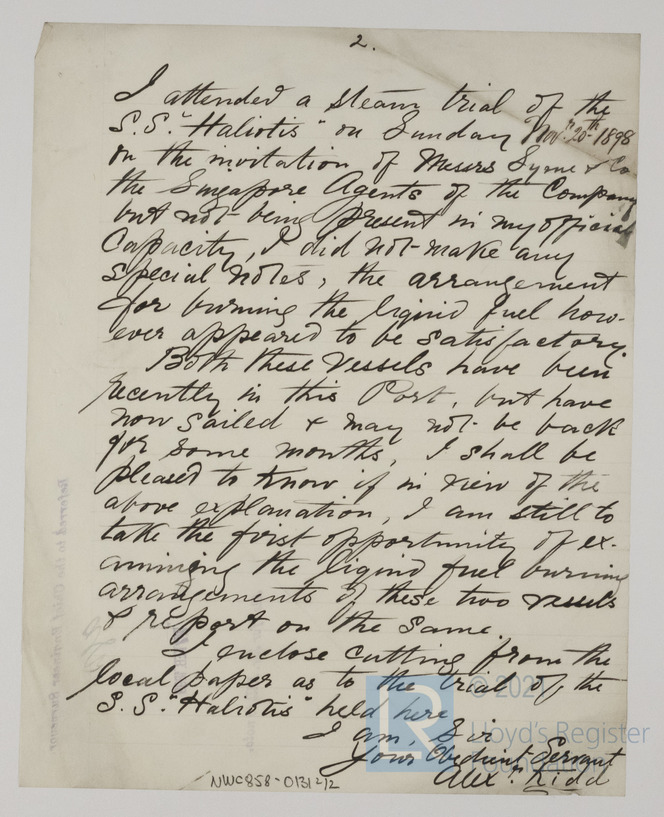 2.
I attended a steam trial of the
S.S. "Haliotis" on Sunday Novr. 20th 1898
on the invitation of Messrs Syme & Co
the Singapore Agents of the Company
but not being present in my official
Capacity, I did not make any
special notes, the arrangement
for burning the liquid fuel how-
ever appeared to be satisfactory.
Both these vessels have been
recently in this Port, but have
now sailed & may not be back
for some months, I shall be
pleased to know if in view of the
above explanation, I am still to
take the first opportunity of ex-
amining the liquid fuel burning
arrangements of these two vessels
& report on the same.
I enclose cutting from the
local paper as to the trial of the
S.S. "Haliotis" held here
I am, Sir
Your Obedient Servant
Alexr. Kidd
NWC858-0131 2/2
© 2021
Lloyd's Register
Foundation
Referred to the Chief Engineer Surveyor